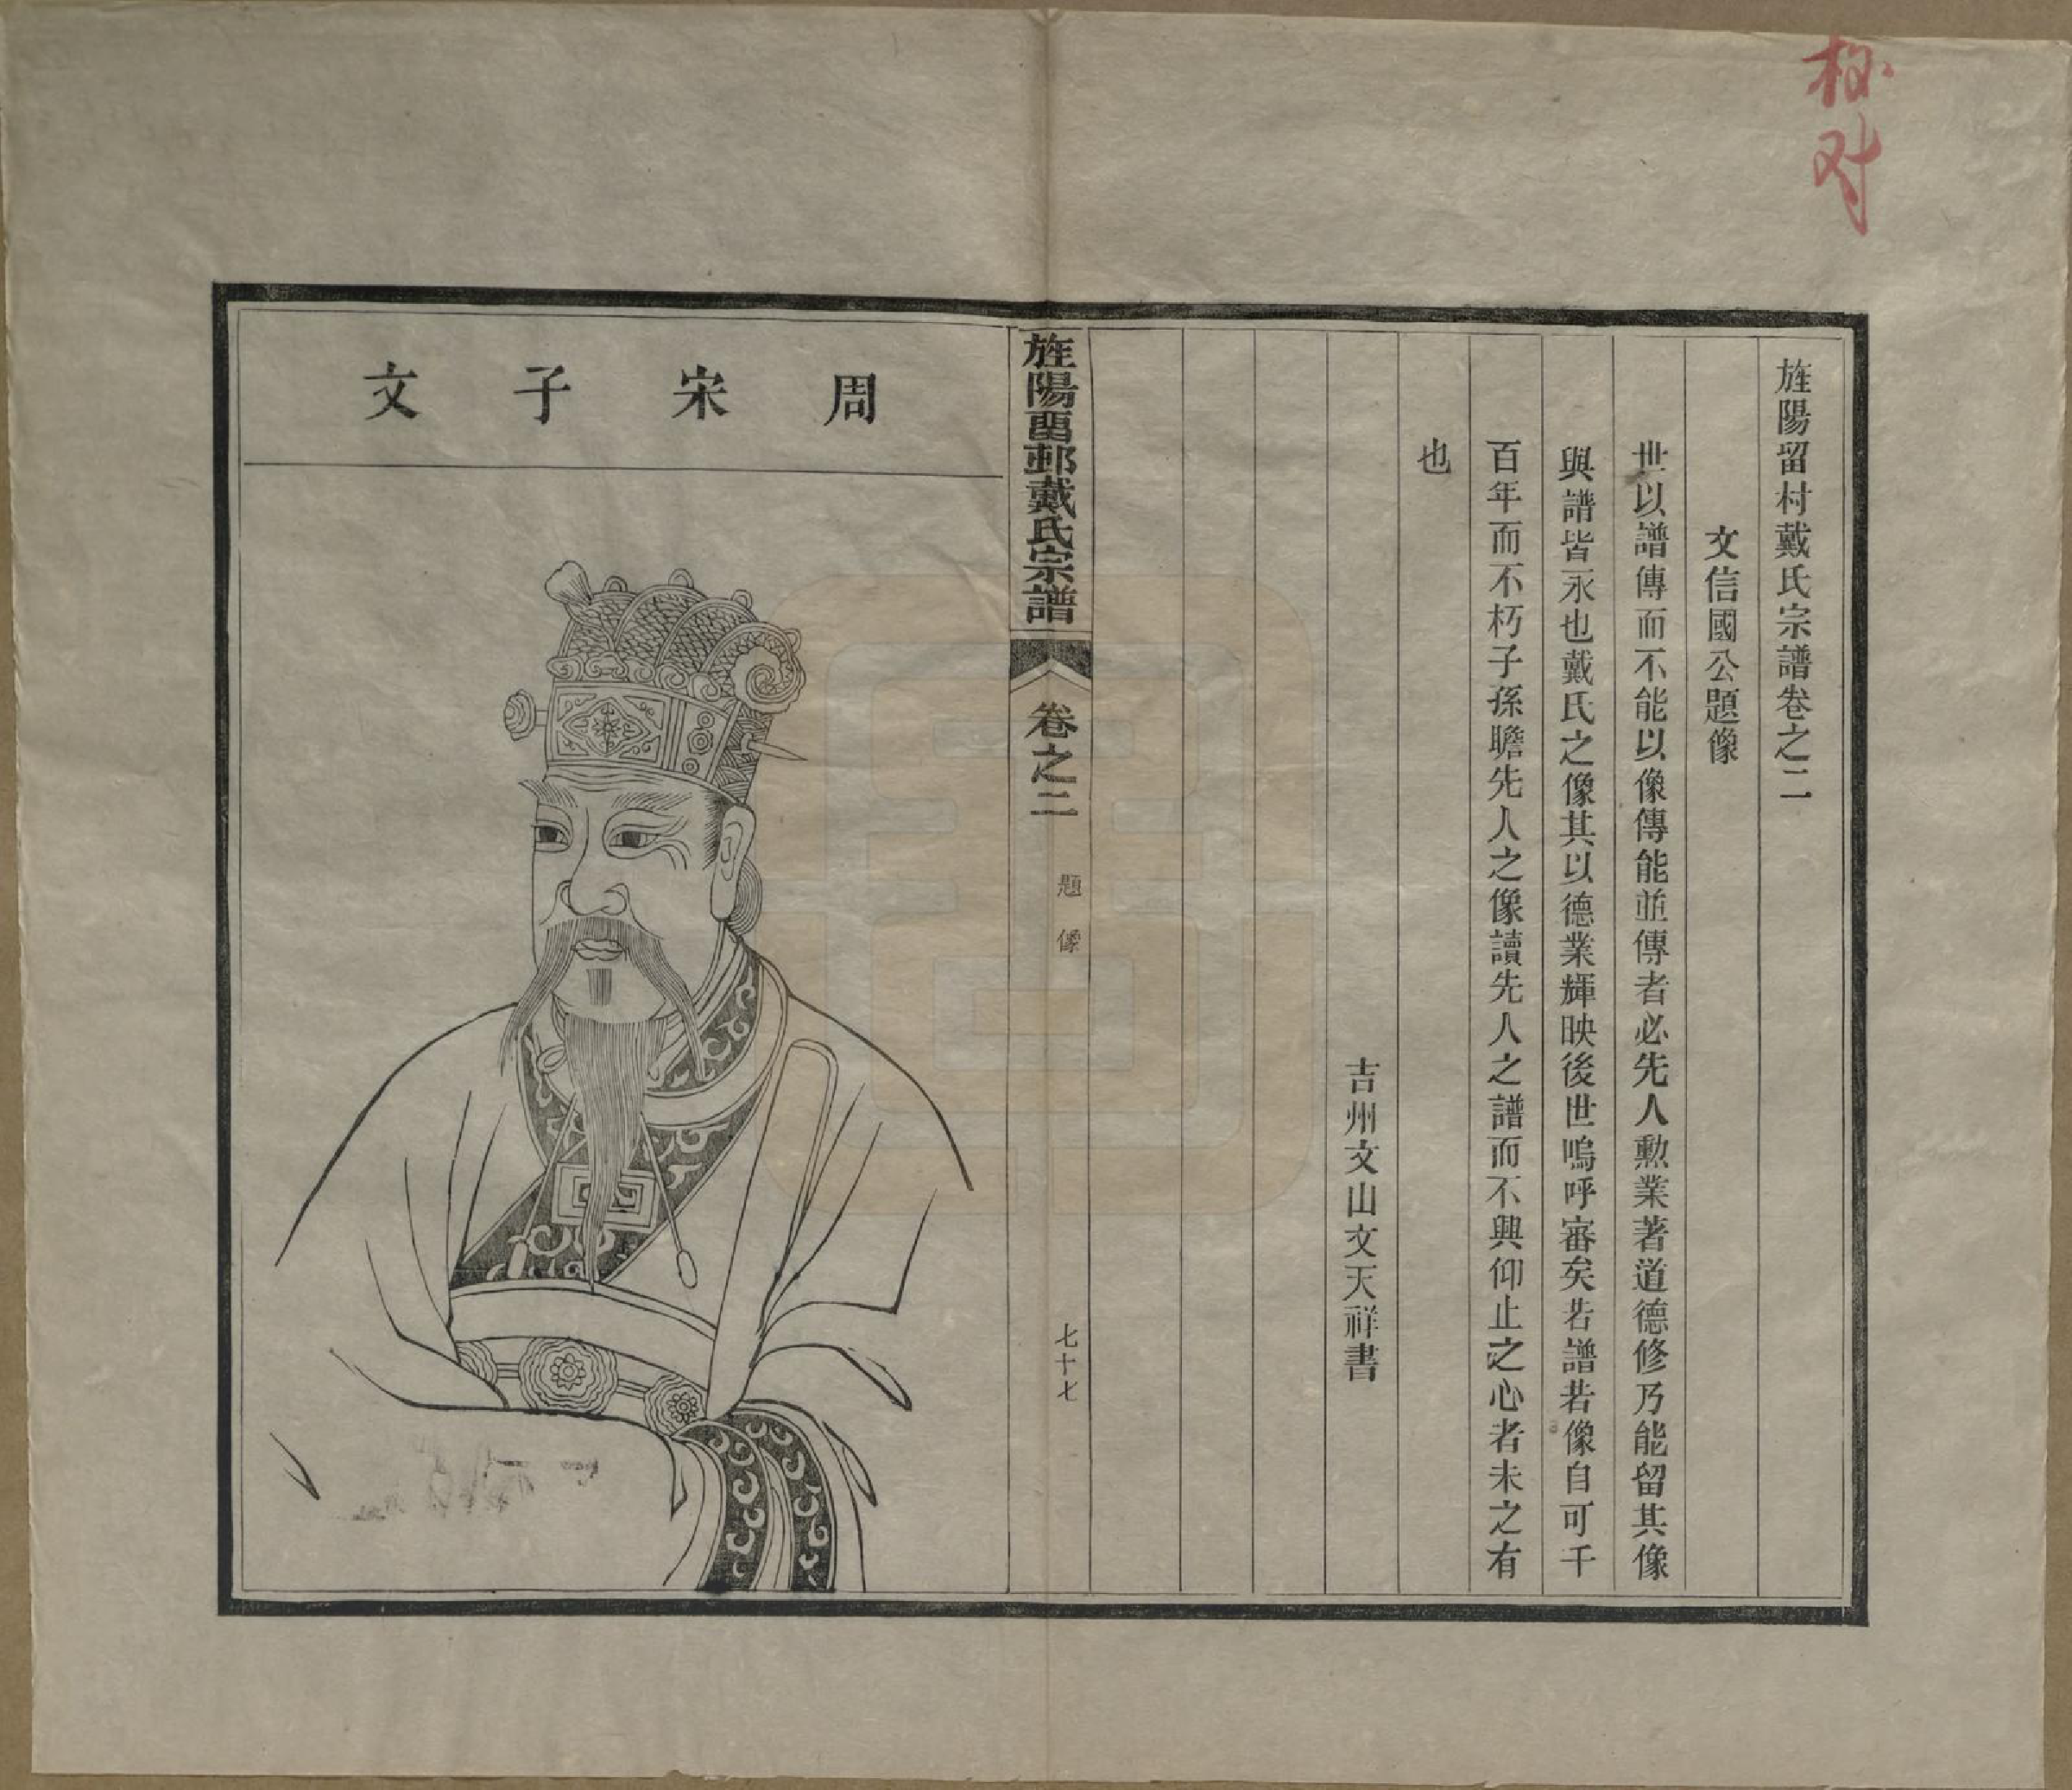 校对
旌陽留村戴氏宗譜卷之二
文信國公題像
世以譜傳而不能以像傳能並傳者必先人勲業著道德修乃能留其像
與譜皆永也戴氏之像其以德業輝映後世嗚呼審矣若譜若像自可千
百年而不朽子孫瞻先人之像讀先人之譜而不興仰止之心者未之有
也
吉州文山文天祥書
旌陽畱邨戴氏宗譜
卷之二
題像
七十七
周宋子文